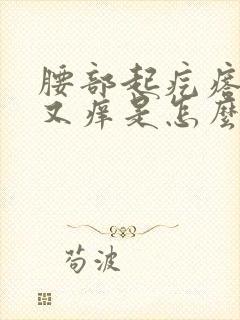 腰部起疙瘩
又痒是怎麼
苟波